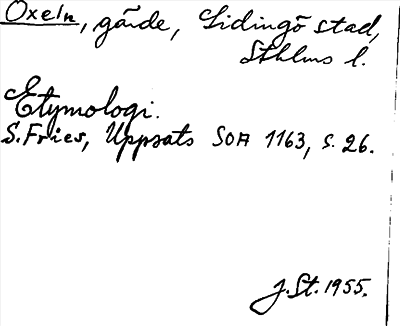 Oxeln, gårde, Lidingö stad,
Sthlms l.
Etymologi.
S. Fries, Uppsats SOA 1163, s. 26.
J. St. 1955.